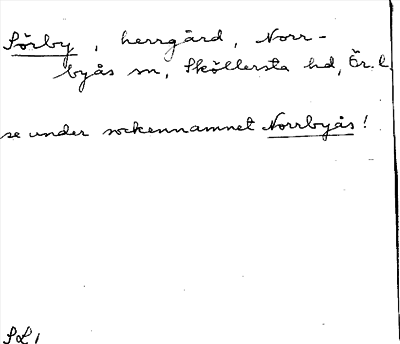 Sörby, herrgård, Norr-
byås sn, Sköllersta hd, Ör. l.
se under sockennamnet Norrbyås!